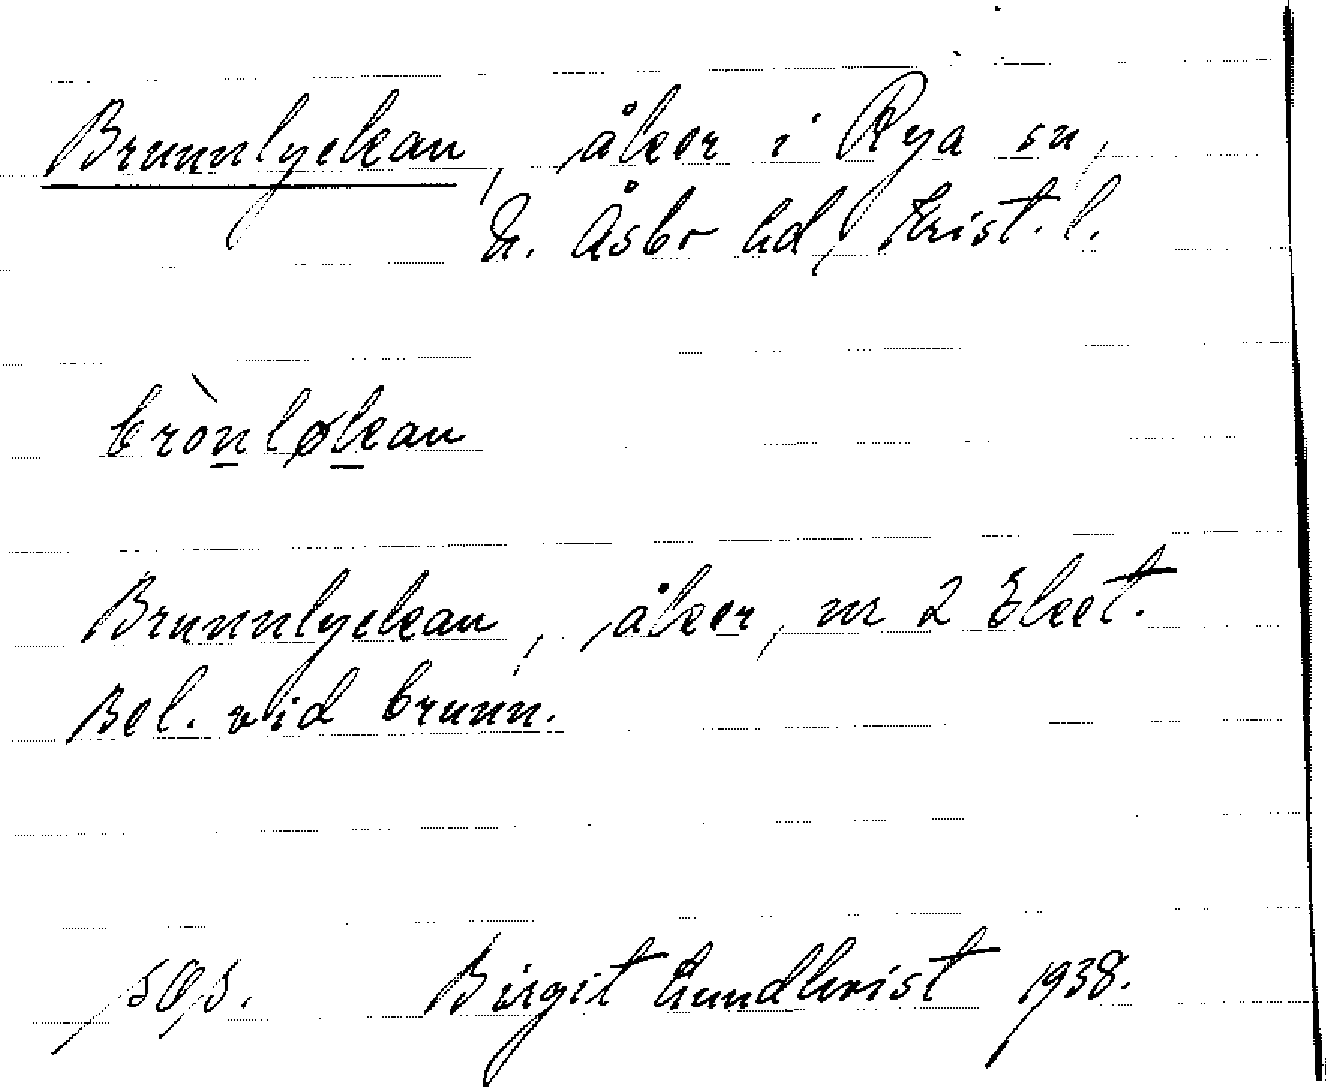 Brunnlyckan, åker i Rya sn,
N. Åsbo hd, Krist. l.
brònløkan
Brunnlyckan, åker, nr 2 Eket.
Bel. vid brunn.
Birgit Lundkvist 1938.